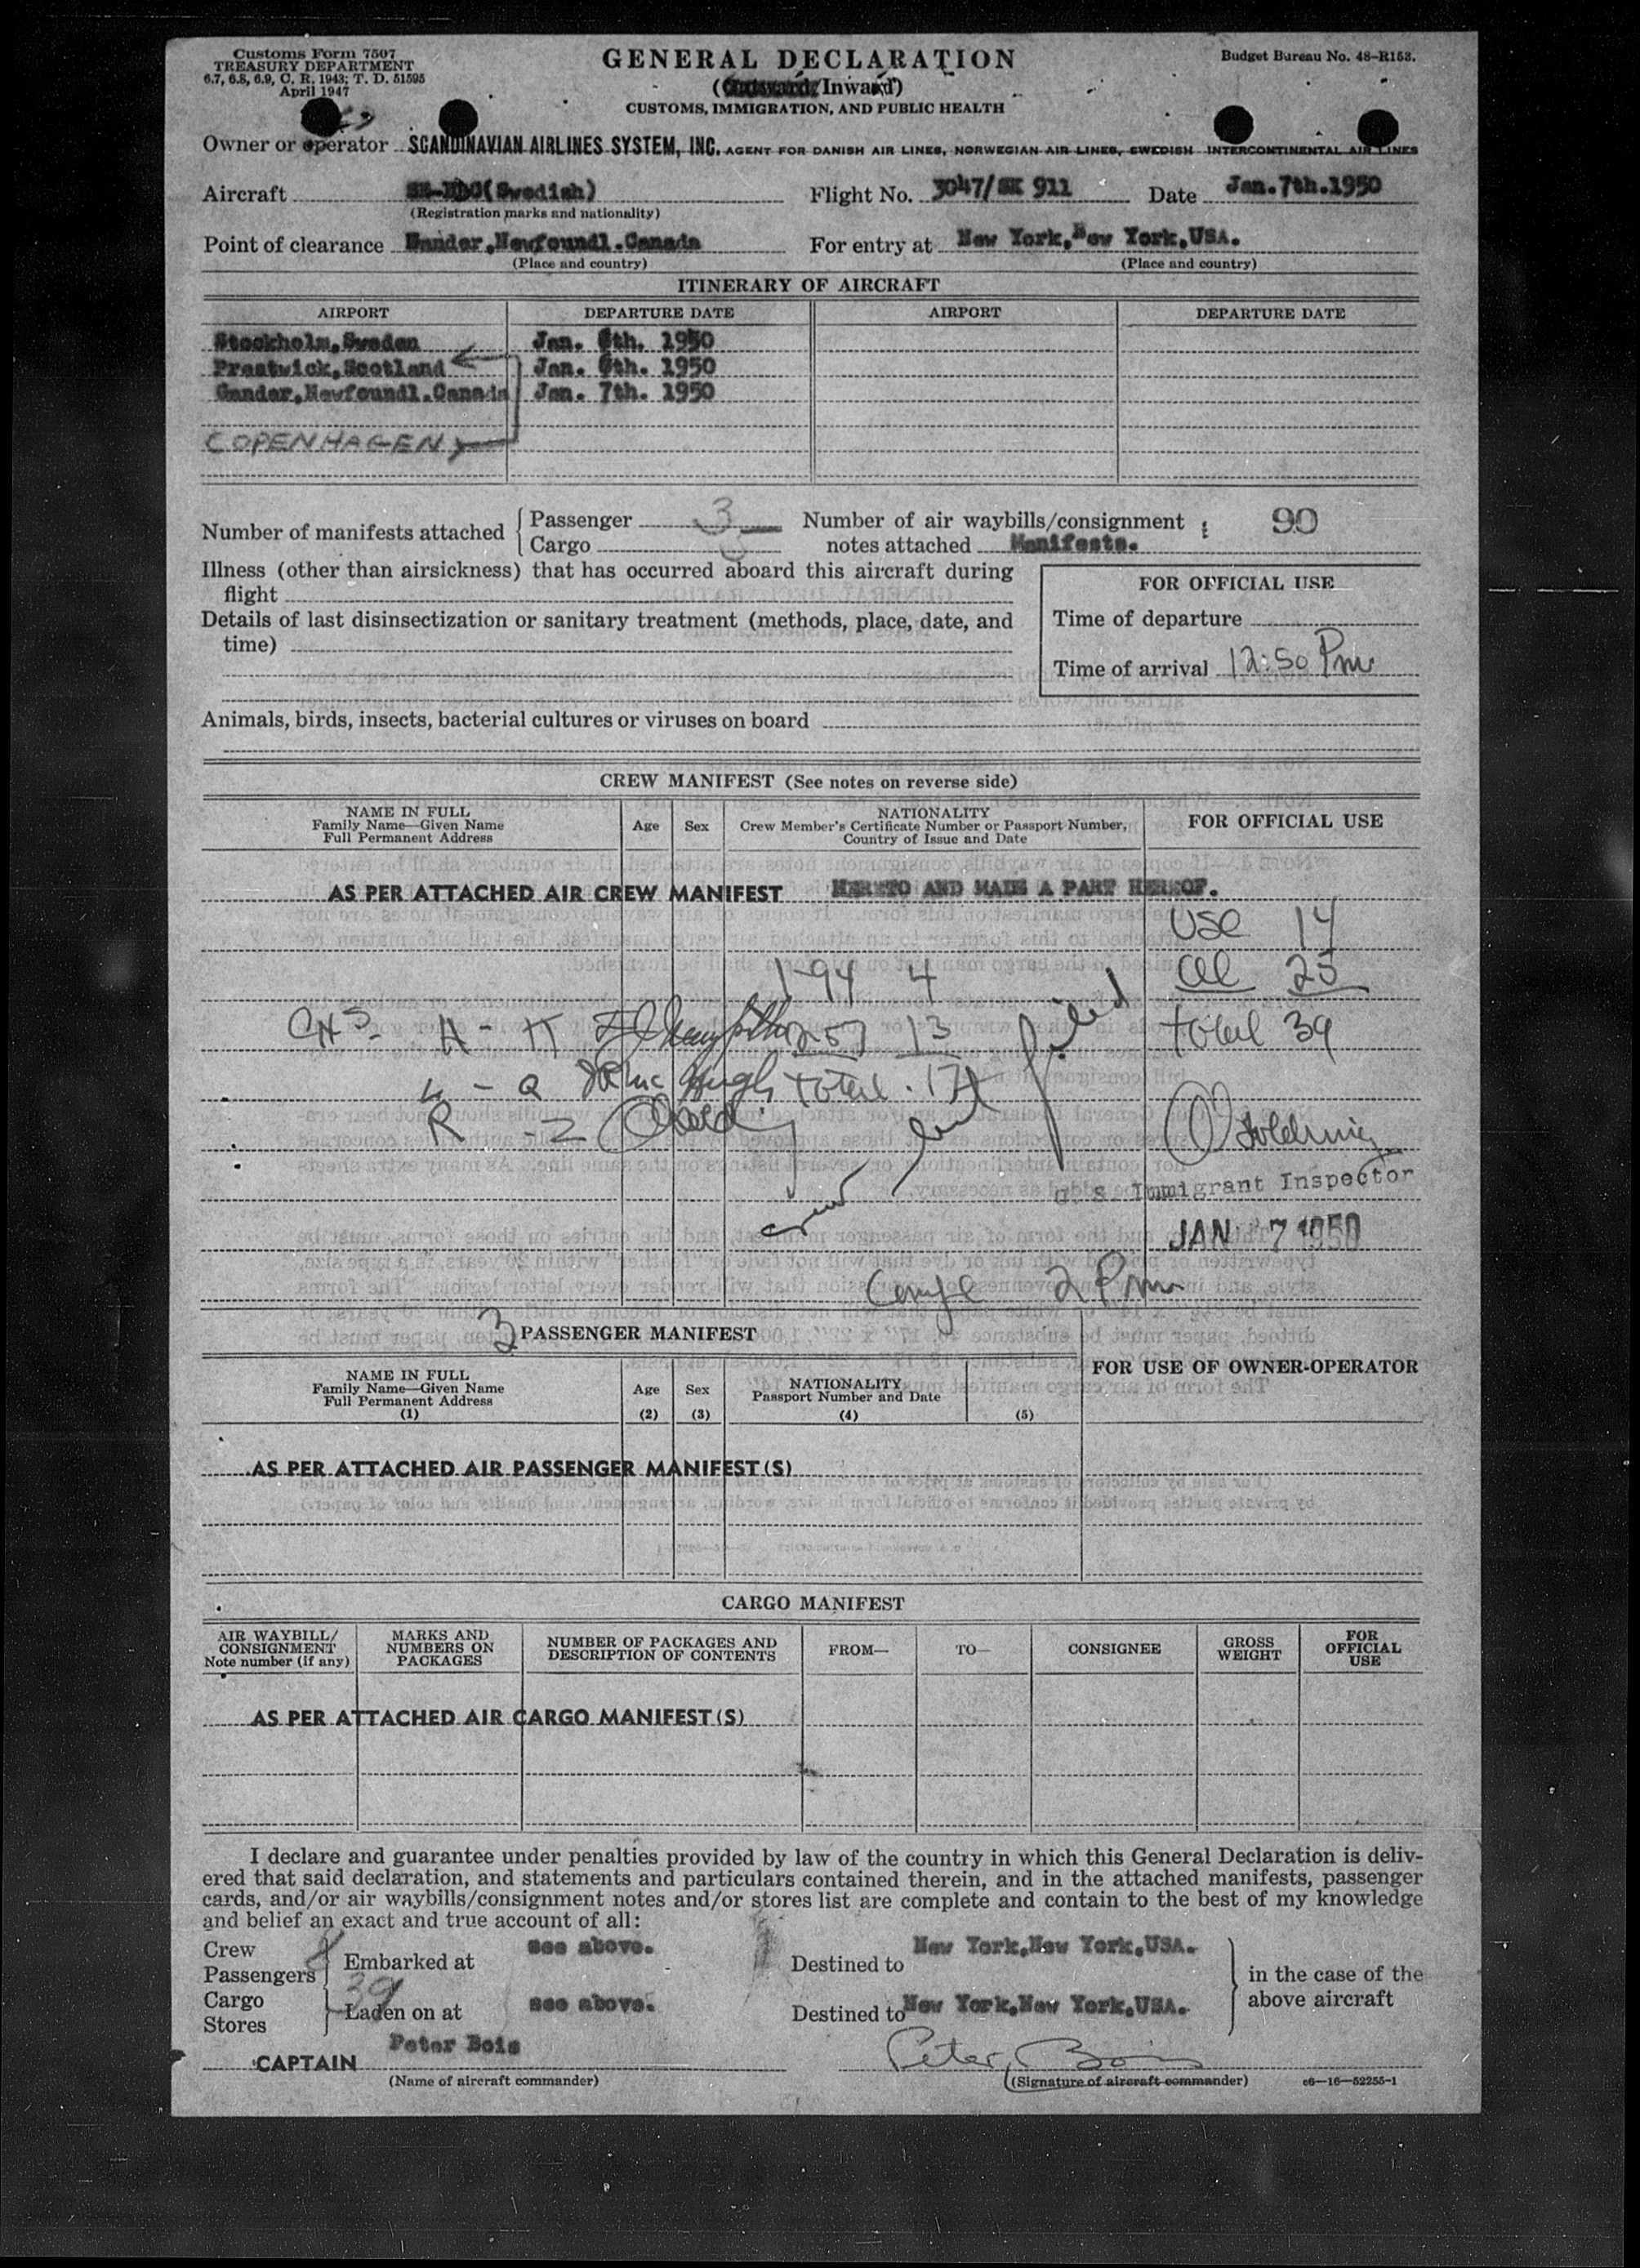 Customs Form 7507
TREASURY DEPARTMENT
6.7, 6.8, 6.9, C. R. 1943; T. D. 51595
April 1947
GENERAL DECLARATION
(Outward/Inward)
CUSTOMS, IMMIGRATION, AND PUBLIC HEALTH
Budget Bureau No. 48-R153.
Owner or operator SCANDINAVIAN AIRLINES SYSTEM, INC. AGENT FOR DANISH AIR LINES, NORWEGIAN AIR LINES, SWEDISH INTERCONTINENTAL AIR LINES
Aircraft (Swedish) Flight No. 3047/SK 911 Date Jan.7th.1950
(Registration marks and nationality)
Point of clearance Gander,Newfoundl.Canada For entry at New York,New York,USA.
(Place and country) (Place and country)
ITINERARY OF AIRCRAFT
AIRPORT DEPARTURE DATE AIRPORT DEPARTURE DATE
Stockholm,Sweden Jan. 6th. 1950
Prestwick,Scotland Jan. 6th. 1950
Gander,Newfoundl.Canada Jan. 7th. 1950
COPENHAGEN
Number of manifests attached Passenger 3 Number of air waybills/consignment : 90
Cargo notes attached Manifests.
Illness (other than airsickness) that has occurred aboard this aircraft during
flight
FOR OFFICIAL USE
Details of last disinsectization or sanitary treatment (methods, place, date, and
time)
Time of departure
Time of arrival 12:50 Pm
Animals, birds, insects, bacterial cultures or viruses on board
CREW MANIFEST (See notes on reverse side)
NAME IN FULL
Family Name—Given Name
Full Permanent Address
Age Sex
NATIONALITY
Crew Member's Certificate Number or Passport Number,
Country of Issue and Date
FOR OFFICIAL USE
AS PER ATTACHED AIR CREW MANIFEST HERETO AND MADE A PART HEREOF.
USC 14
I-94 4 al 25
A - K 257 13 filed total 39
L - Q total 17
R - Z
U. S. Immigrant Inspector
crew
JAN 7 1950
2 Pm
3 PASSENGER MANIFEST
NAME IN FULL
Family Name—Given Name
Full Permanent Address
(1)
Age
(2)
Sex
(3)
NATIONALITY
Passport Number and Date
(4) (5)
FOR USE OF OWNER-OPERATOR
AS PER ATTACHED AIR PASSENGER MANIFEST(S)
CARGO MANIFEST
AIR WAYBILL/
CONSIGNMENT
Note number (if any)
MARKS AND
NUMBERS ON
PACKAGES
NUMBER OF PACKAGES AND
DESCRIPTION OF CONTENTS
FROM— TO— CONSIGNEE
GROSS
WEIGHT
FOR
OFFICIAL
USE
AS PER ATTACHED AIR CARGO MANIFEST(S)
I declare and guarantee under penalties provided by law of the country in which this General Declaration is deliv-
ered that said declaration, and statements and particulars contained therein, and in the attached manifests, passenger
cards, and/or air waybills/consignment notes and/or stores list are complete and contain to the best of my knowledge
and belief an exact and true account of all:
Crew
Passengers Embarked at see above. Destined to New York,New York,USA.
in the case of the
above aircraft
39
Cargo
Stores Laden on at see above. Destined to New York,New York,USA.
CAPTAIN Peter Bois Peter Bois
(Name of aircraft commander) (Signature of aircraft commander) c6—16—52255-1